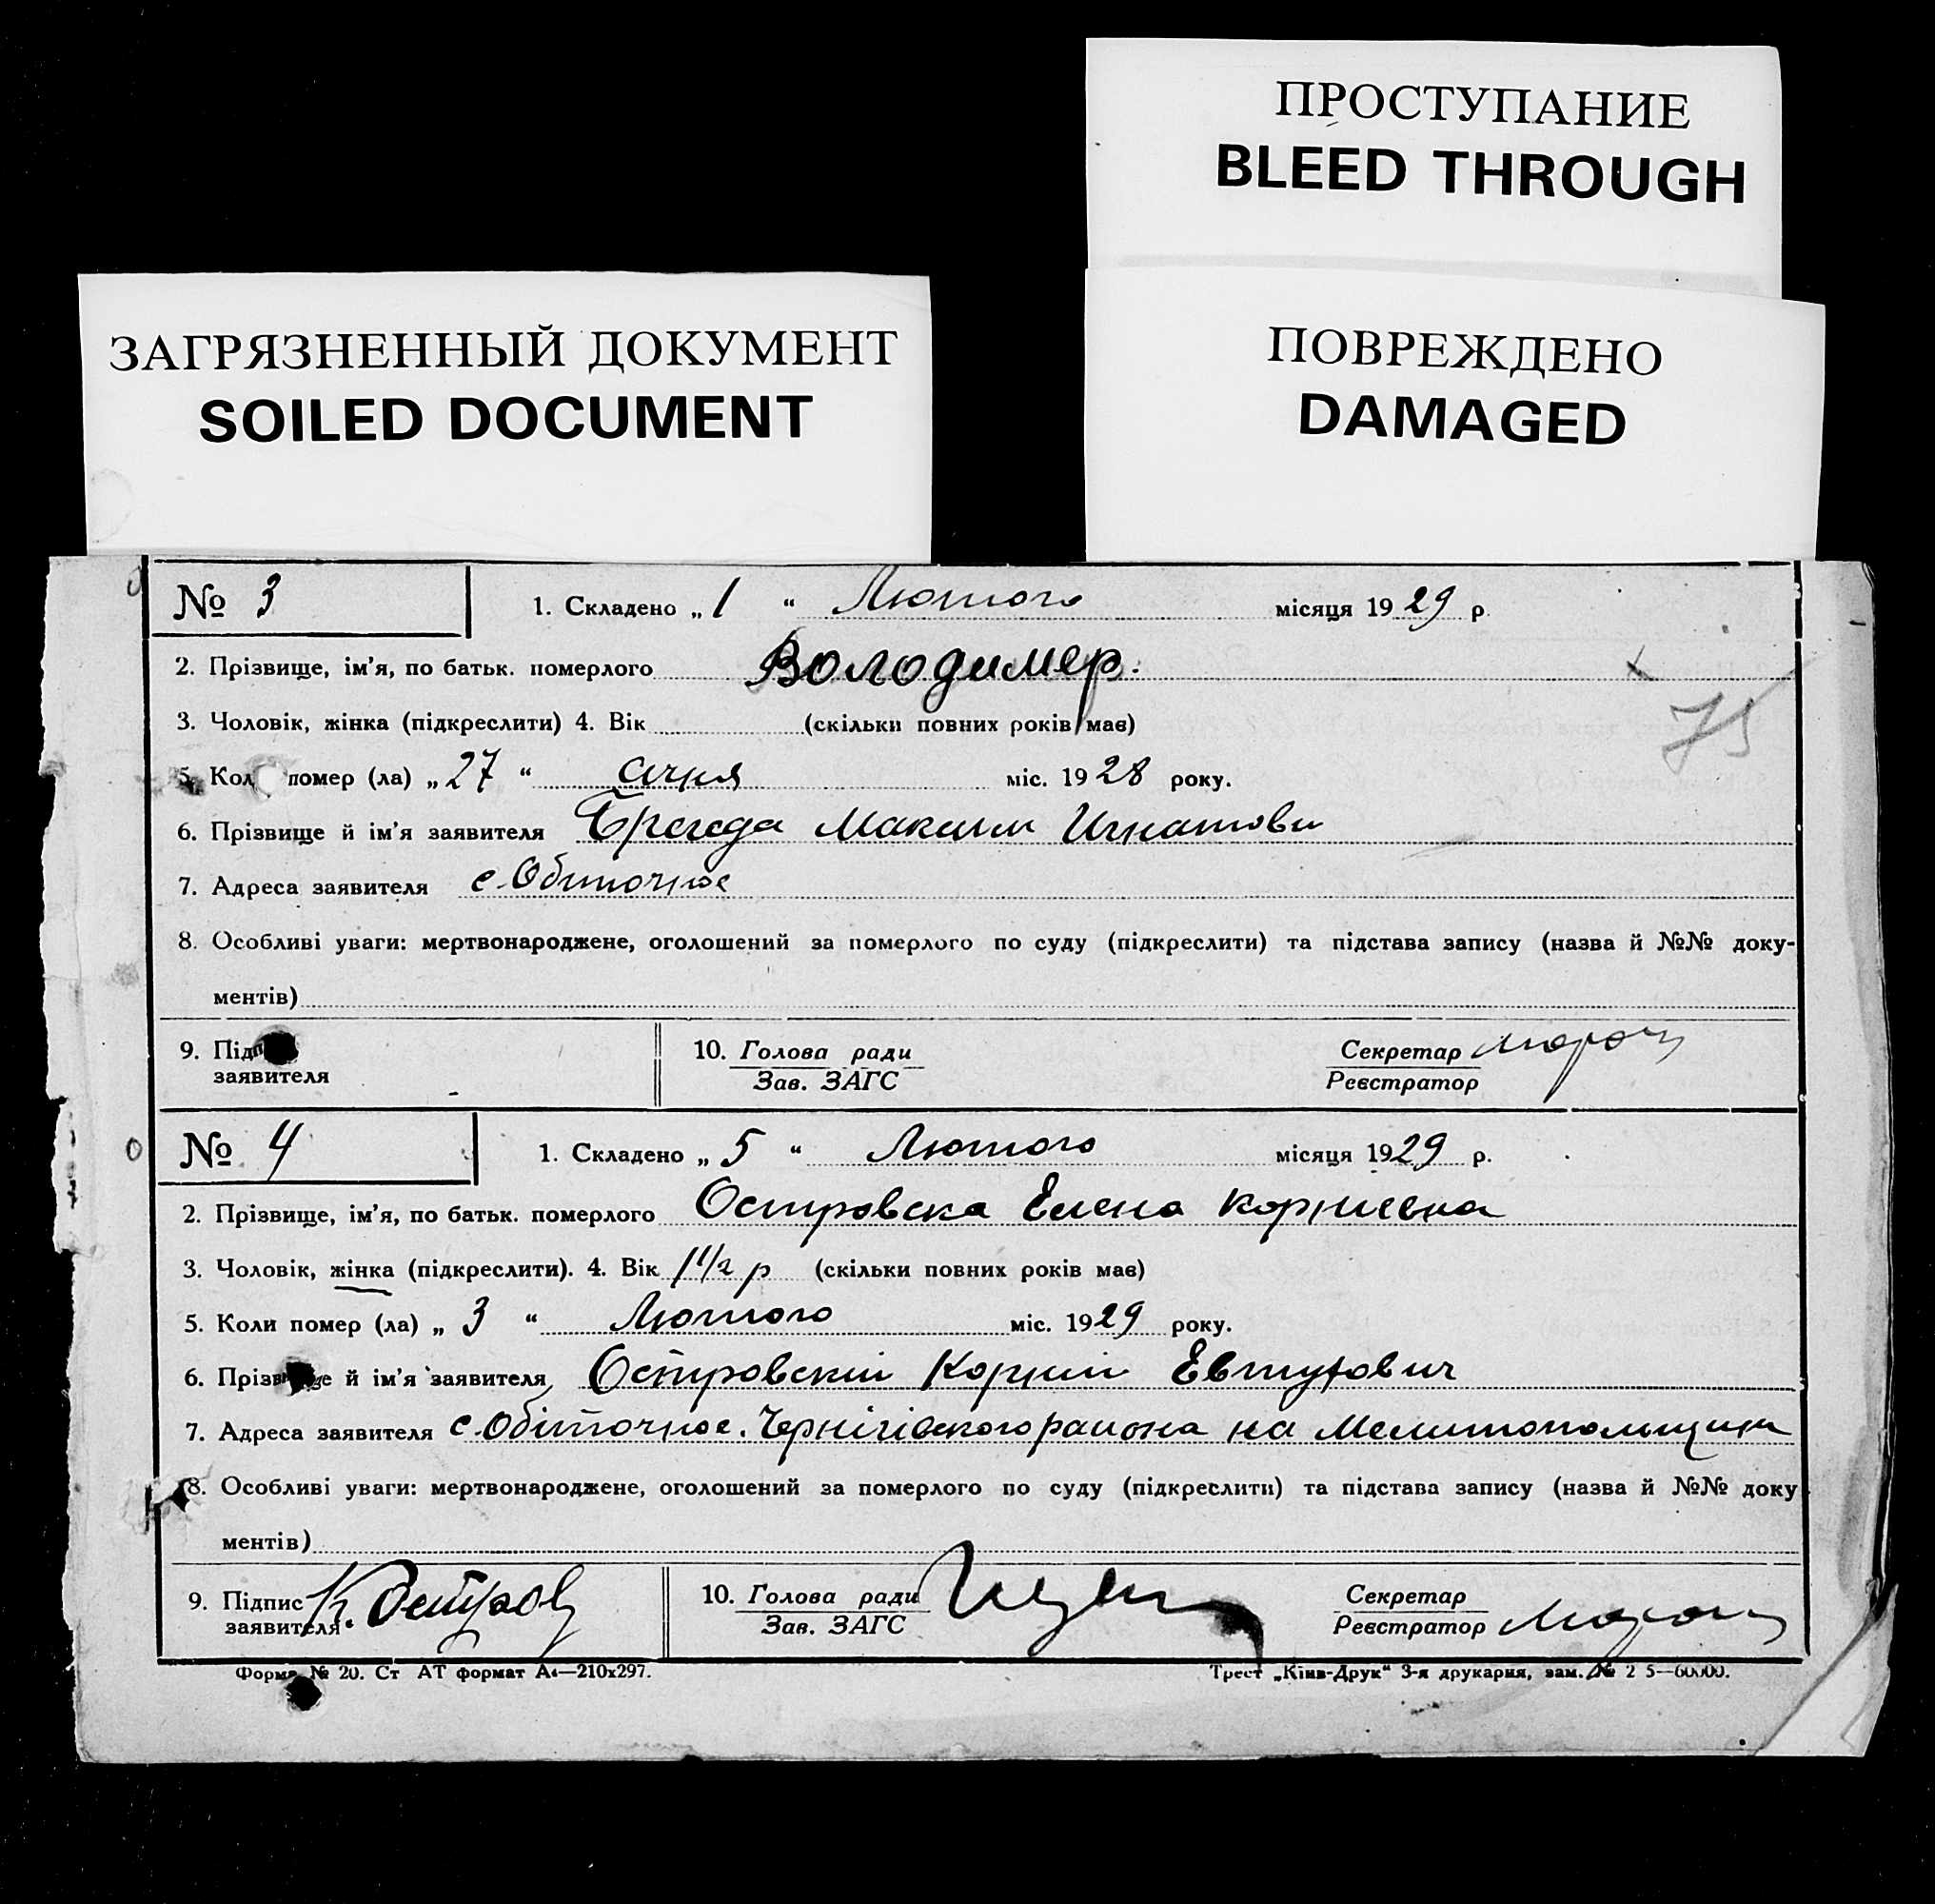 ПРОСТУПАНИЕ
BLEED THROUGH
ЗАГРЯЗНЕННЫЙ ДОКУМЕНТ
SOILED DOCUMENT
ПОВРЕЖДЕНО
DAMAGED
№ 3 1. Складено „ 1 “ Лютого місяця 1929 р.
2. Прізвище, ім'я, по батьк. померлого Володимер.
3. Чоловік, жінка (підкреслити) 4. Вік (скільки повних років має)
75
5. Кол помер (ла) „ 27 “ січня міс. 1928 року.
6. Прізвище й ім'я заявителя Максим Игнатови
7. Адреса заявителя с. Обиточное
8. Особливі уваги: мертвонароджене, оголошений за померлого по суду (підкреслити) та підстава запису (назва й №№ доку-
ментів)
9. Підп
заявителя
10. Голова ради
Зав. ЗАГС
Секретар
Реєстратор
№ 4 1. Складено „ 5 “ Лютого місяця 1929 р.
2. Прізвище, ім'я, по батьк. померлого Островска Елена Корниевна
3. Чоловік, жінка (підкреслити). 4. Вік 1 1/2 р (скільки повних років має)
5. Коли помер (ла) „ 3 “ Лютого міс. 1929 року.
6. Прізвище й ім'я заявителя Островский Корний
7. Адреса заявителя с. Обіточное. Чернігівского района на Мелитопольщини
8. Особливі уваги: мертвонароджене, оголошений за померлого по суду (підкреслити) та підстава запису (назва й №№ доку
ментів)
9. Підпис К. Остров
заявителя
10. Голова ради
Зав. ЗАГС
Секретар
Реєстратор
Форма № 20. Ст АТ формат А4—210х297.
Трест „Київ-Друк“ 3-я друкарня, зам. № 2 5—60000.